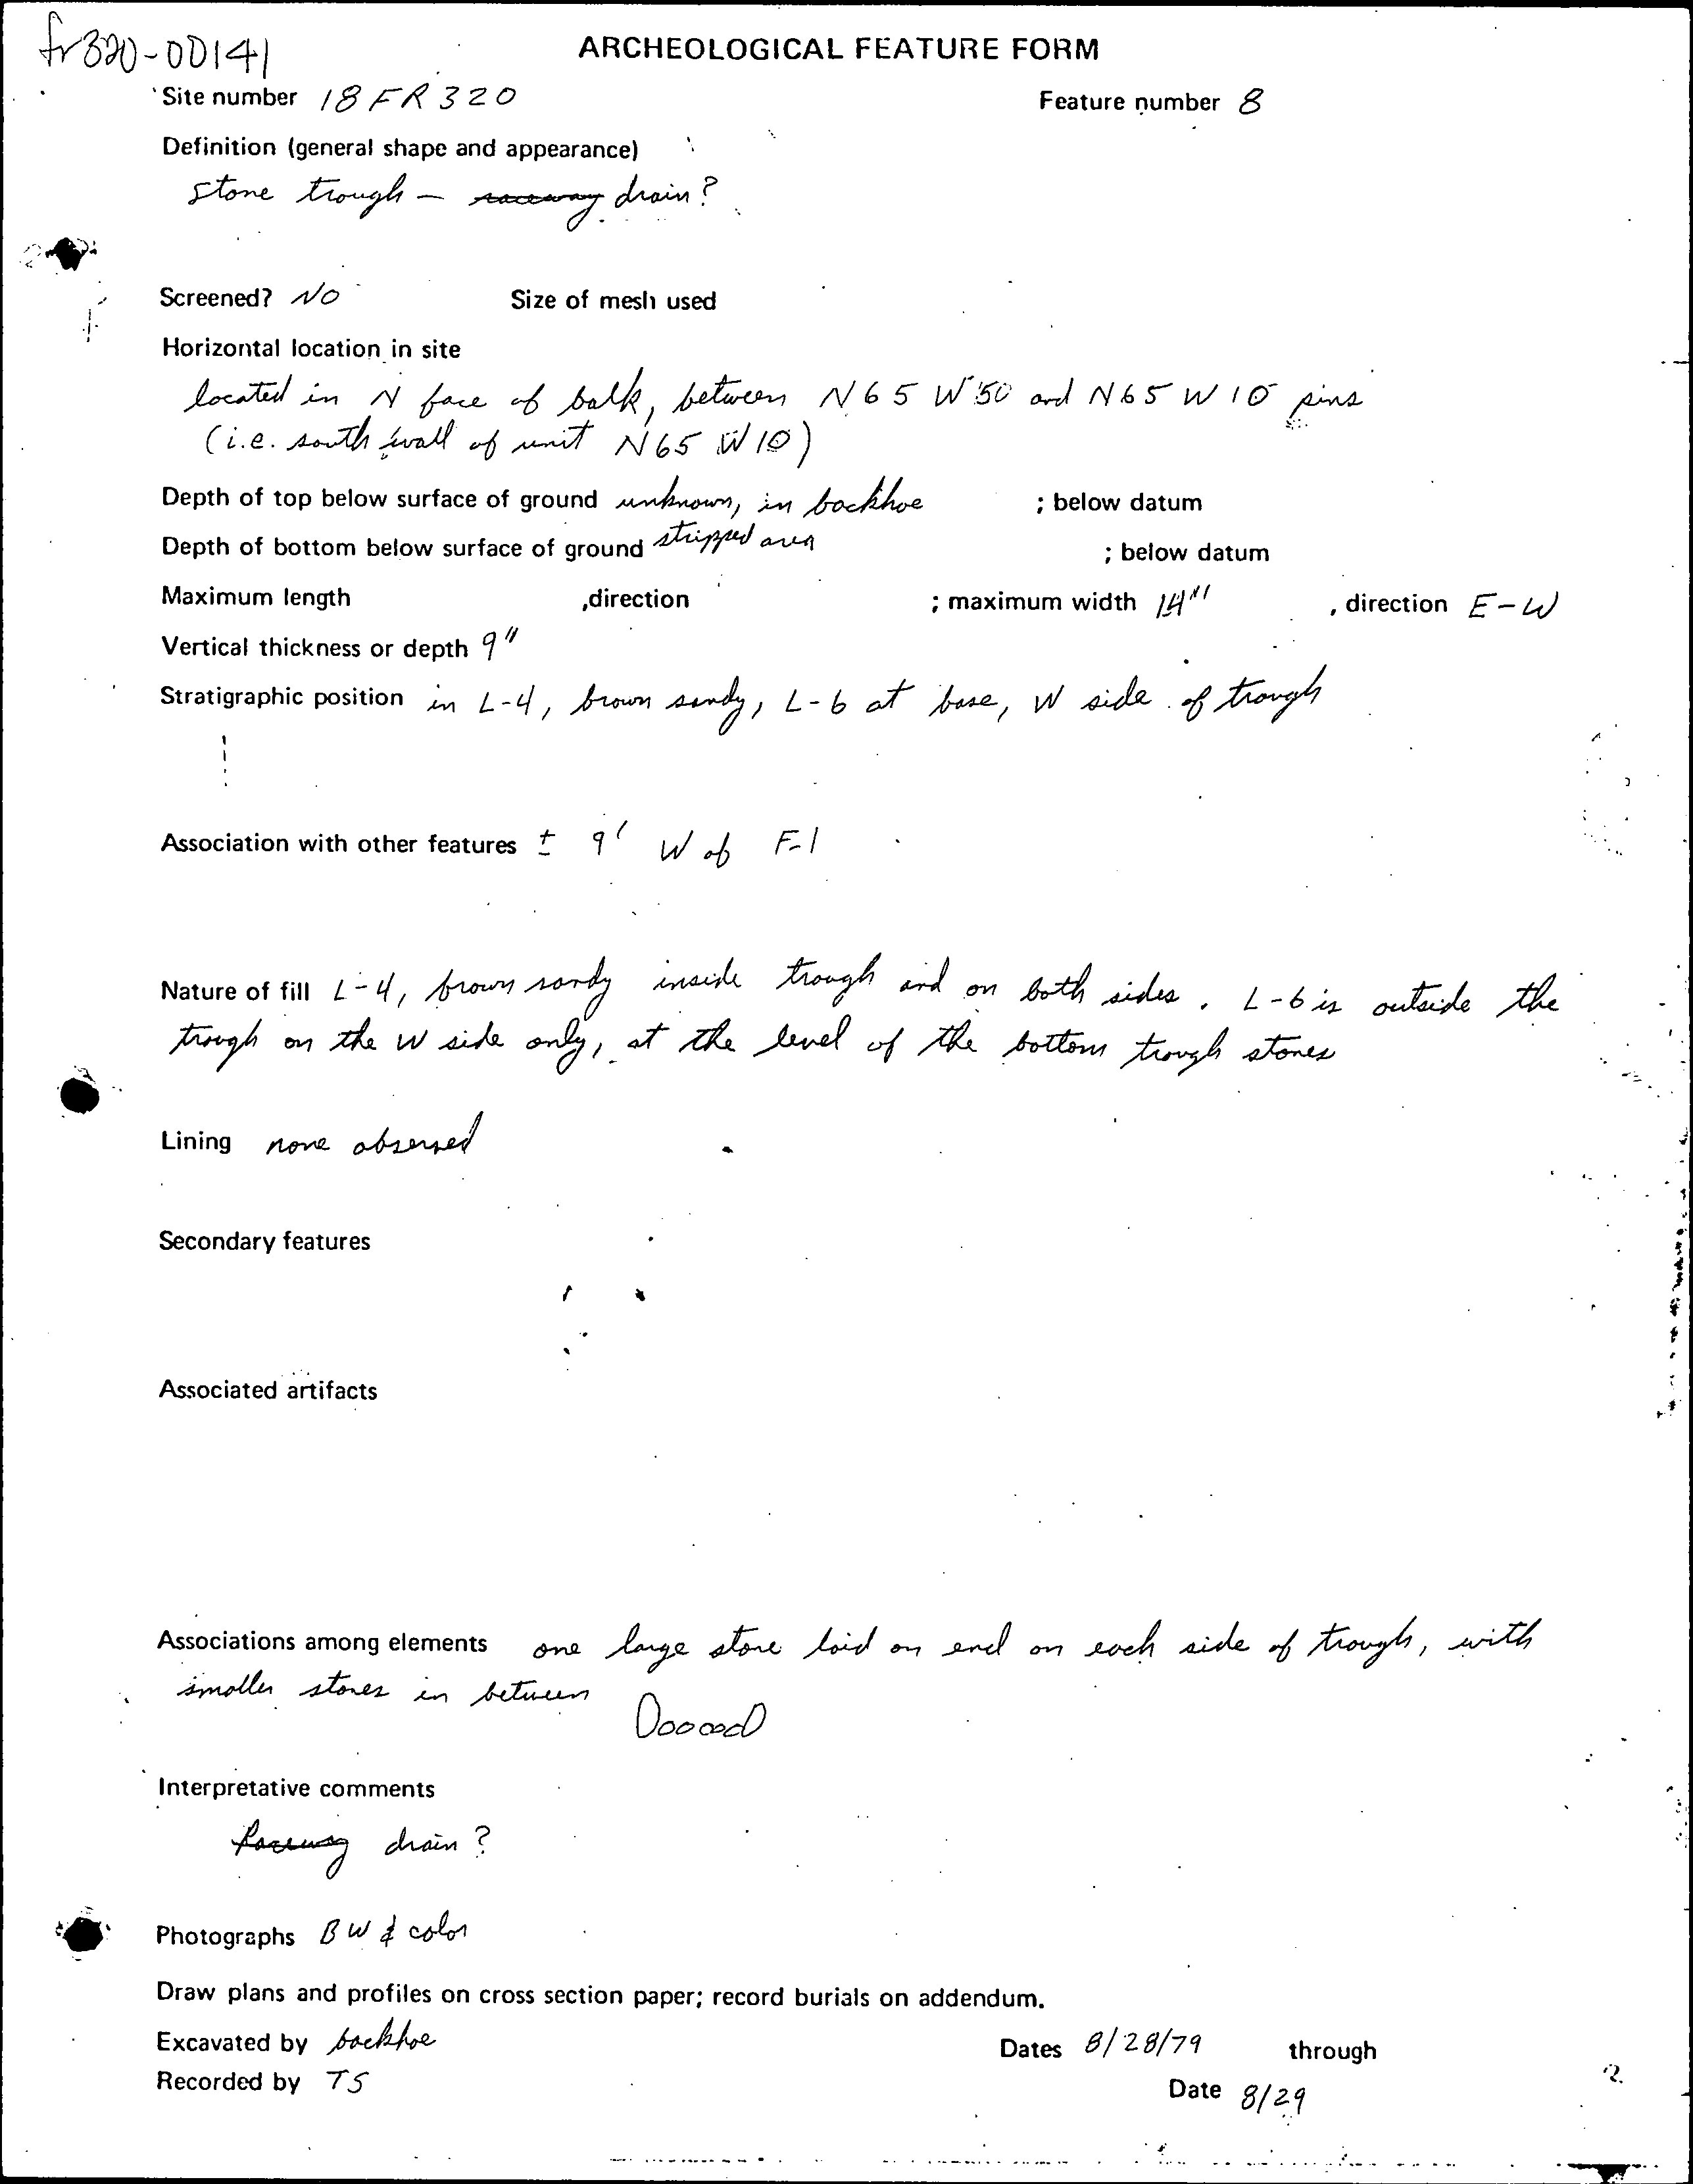 fr320-00141
ARCHEOLOGICAL FEATURE FORM
Site number 18FR320 Feature number 8
Definition (general shape and appearance)
stone trough – raceway drain?
Screened? NO Size of mesh used
Horizontal location in site
located in N face of balk, between N65 W50 and N65 W10 pins
(i.e. south wall of unit N65 W10)
Depth of top below surface of ground unknown, in backhoe ; below datum
Depth of bottom below surface of ground stripped area ; below datum
Maximum length ,direction ; maximum width 14" , direction E-W
Vertical thickness or depth 9"
Stratigraphic position in L-4, brown sandy, L-6 at base, W side of trough
Association with other features ± 9' W of F-1
Nature of fill L-4, brown sandy inside trough and on both sides. L-6 is outside the
trough on the W side only, at the level of the bottom trough stones
Lining none observed
Secondary features
Associated artifacts
Associations among elements one large stone laid on end on each side of trough, with
smaller stones in between
Interpretative comments
Raceway drain?
Photographs BW & color
Draw plans and profiles on cross section paper; record burials on addendum.
Excavated by backhoe Dates 8/28/79 through
Recorded by TS Date 8/29